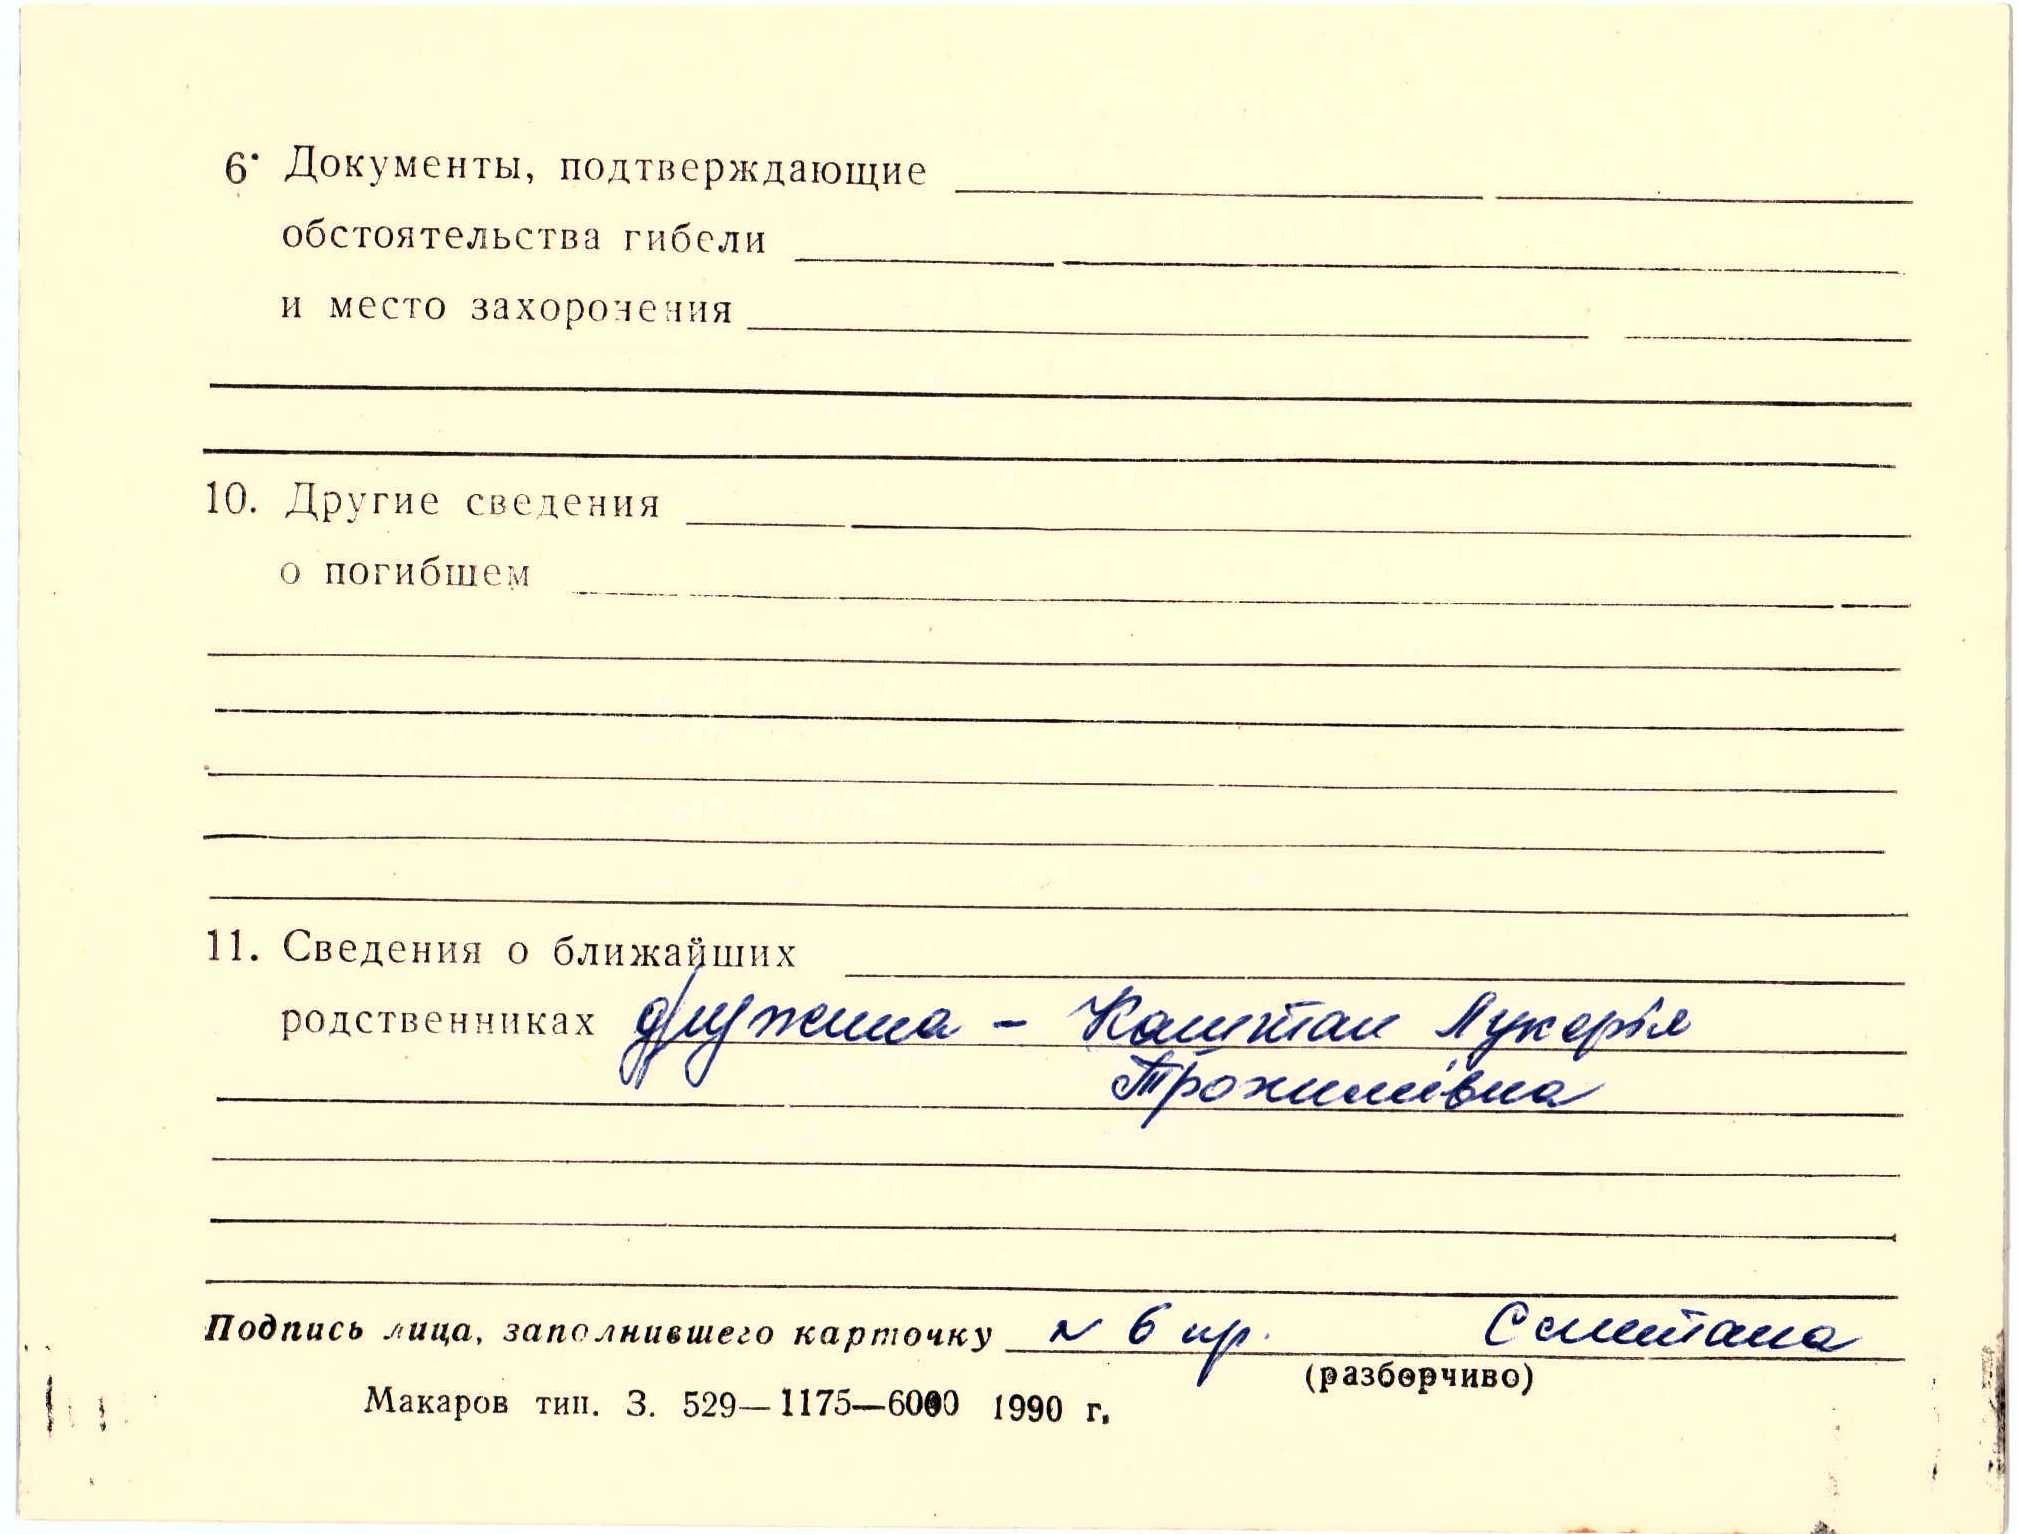 6. Документы, подтверждающие
обстоятельства гибели
и место захоронения
10. Другие сведения
о погибшем
11. Сведения о ближайших
родственниках дружина - Каштан Лукерія
Трохимівна
Подпись лица, заполнившего карточку 6 пр. Сметана
(разборчиво)
Макаров тип. З. 529—1175—6000 1990 г.